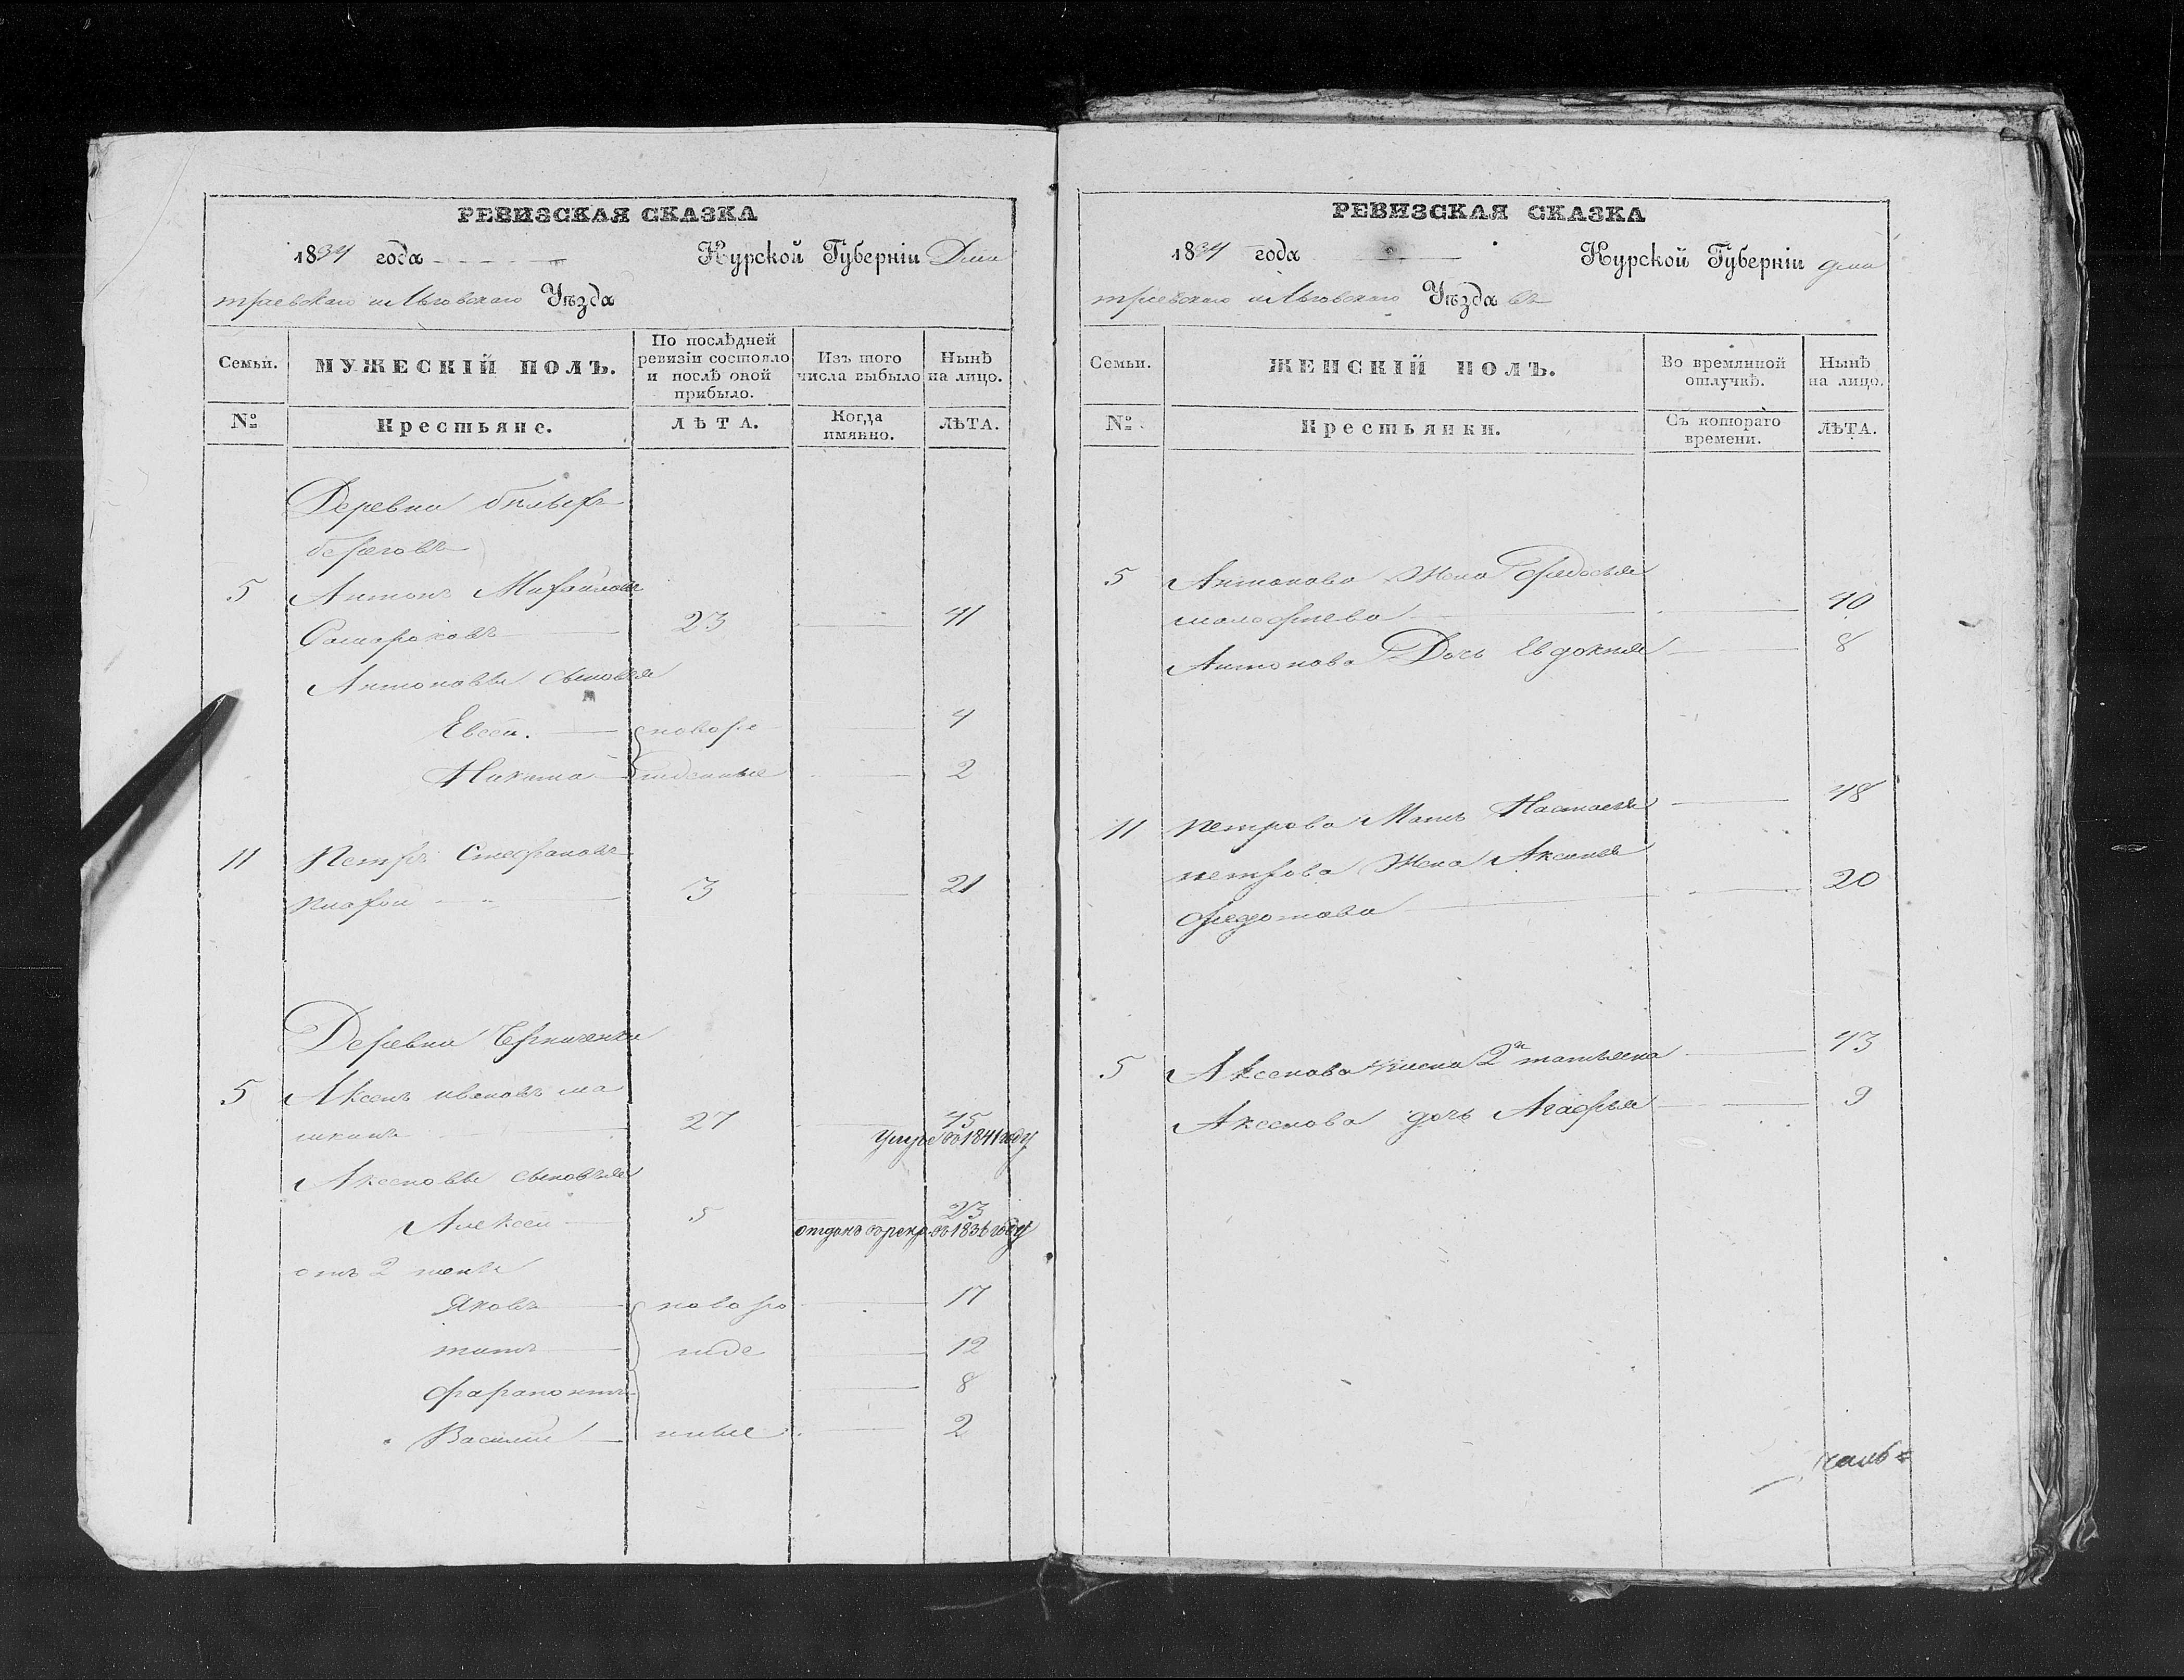 РЕВИЗСКАЯ СКАЗКА
1834 года Курской Губерніи Дми
тріевскаго и Льговскаго Уѣзда
Семьи.
МУЖЕСКІЙ ПОЛЪ.
По послѣдней
ревизіи состояло
и послѣ оной
прибыло.
Изъ того
числа выбыло
Нынѣ
на лицо.
№
Крестьяне.
ЛѢТА.
Когда
имянно.
ЛѢТА.
Деревни белыхъ
береговъ
5 Антонъ Михайловъ
23 41
Антоновы сыновья
Евсей. новоро 4
Никита жденные 2
11 Петръ Стефановъ
3 21
Деревни
5 Аксенъ ивановъ ма
шкинъ 27 45
Умре въ 1841 году
Аксеновы сыновья
Алексей 5 23
отданъ въ рекр. въ 1836 году
отъ 2 жены
Яковъ новоро 17
титъ жде 12
фарапонтъ 8
Василий нные 2
РЕВИЗСКАЯ СКАЗКА
1834 года Курской Губерніи дми
тріевскаго и Льговскаго Уѣзда
Семьи.
ЖЕНСКІЙ ПОЛЪ.
Во времянной
отлучкѣ.
Нынѣ
на лицо.
№
Крестьянки.
Съ котораго
времени.
ЛѢТА.
5 Антонова Жена Федосья
малофеева 40
Антонова Дочь Евдокия 8
11 петрова Мать Настасья 48
петрова Жена Аксинья
федотова 20
5 Аксенова жена 2я татьяна 43
Аксенова дочь Агафья 9